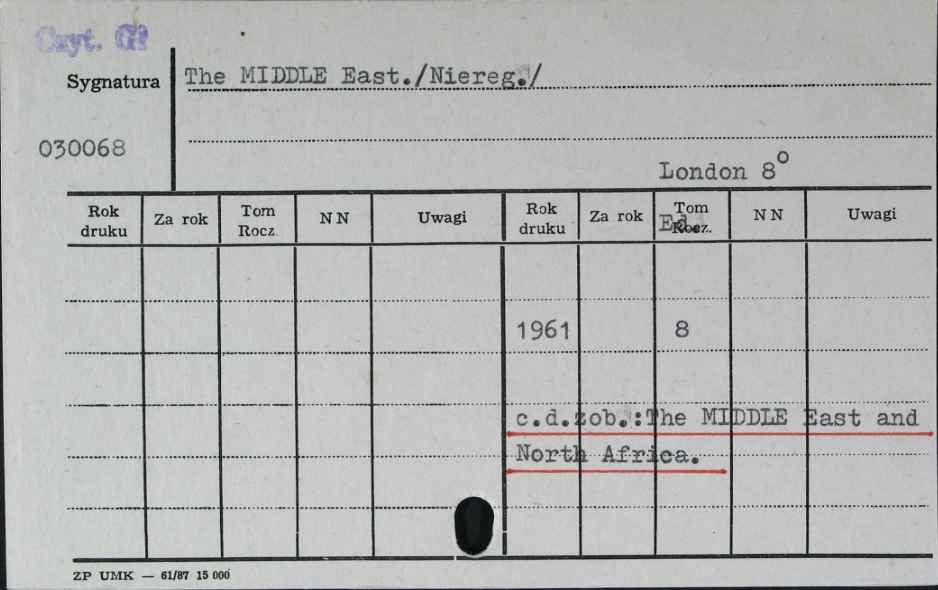 Czyt. GŁ
Sygnatura
The MIDDLE East./Niereg./
030068
London 8°
Rok druku Za rok Tom Rocz. NN Uwagi Rok druku Za rok Tom Rocz. NN Uwagi
Ed.
1961 8
c.d.zob.:The MIDDLE East and
North Africa.
ZP UMK — 61/87 15 000